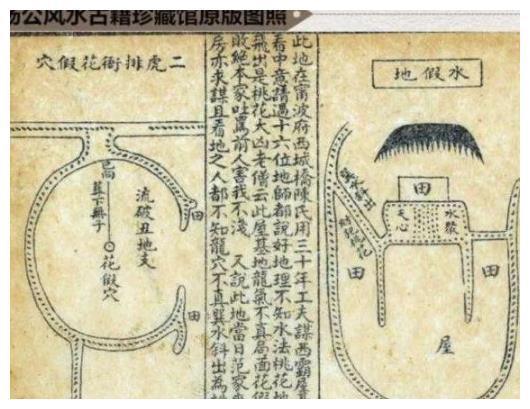 公风水古籍珍藏馆原版图照
水假地
田
水聚
天心
田
田
屋
此地在甯波府西城橋陳氏用三十年工夫謀西霸屋
看中意請遇十六位地師都說好地理不知水法桃花地
飛出是桃花大凶老僧云此屋基地龍氣不真局面花假
敗絕本家吐罵前人害我不淺 又說此地當日范家
房亦求謀且看地之人都不知龍穴不真 水斜出為
二虎排衙花假穴
流破丑地支
高
葬下無子
花假穴
田
田